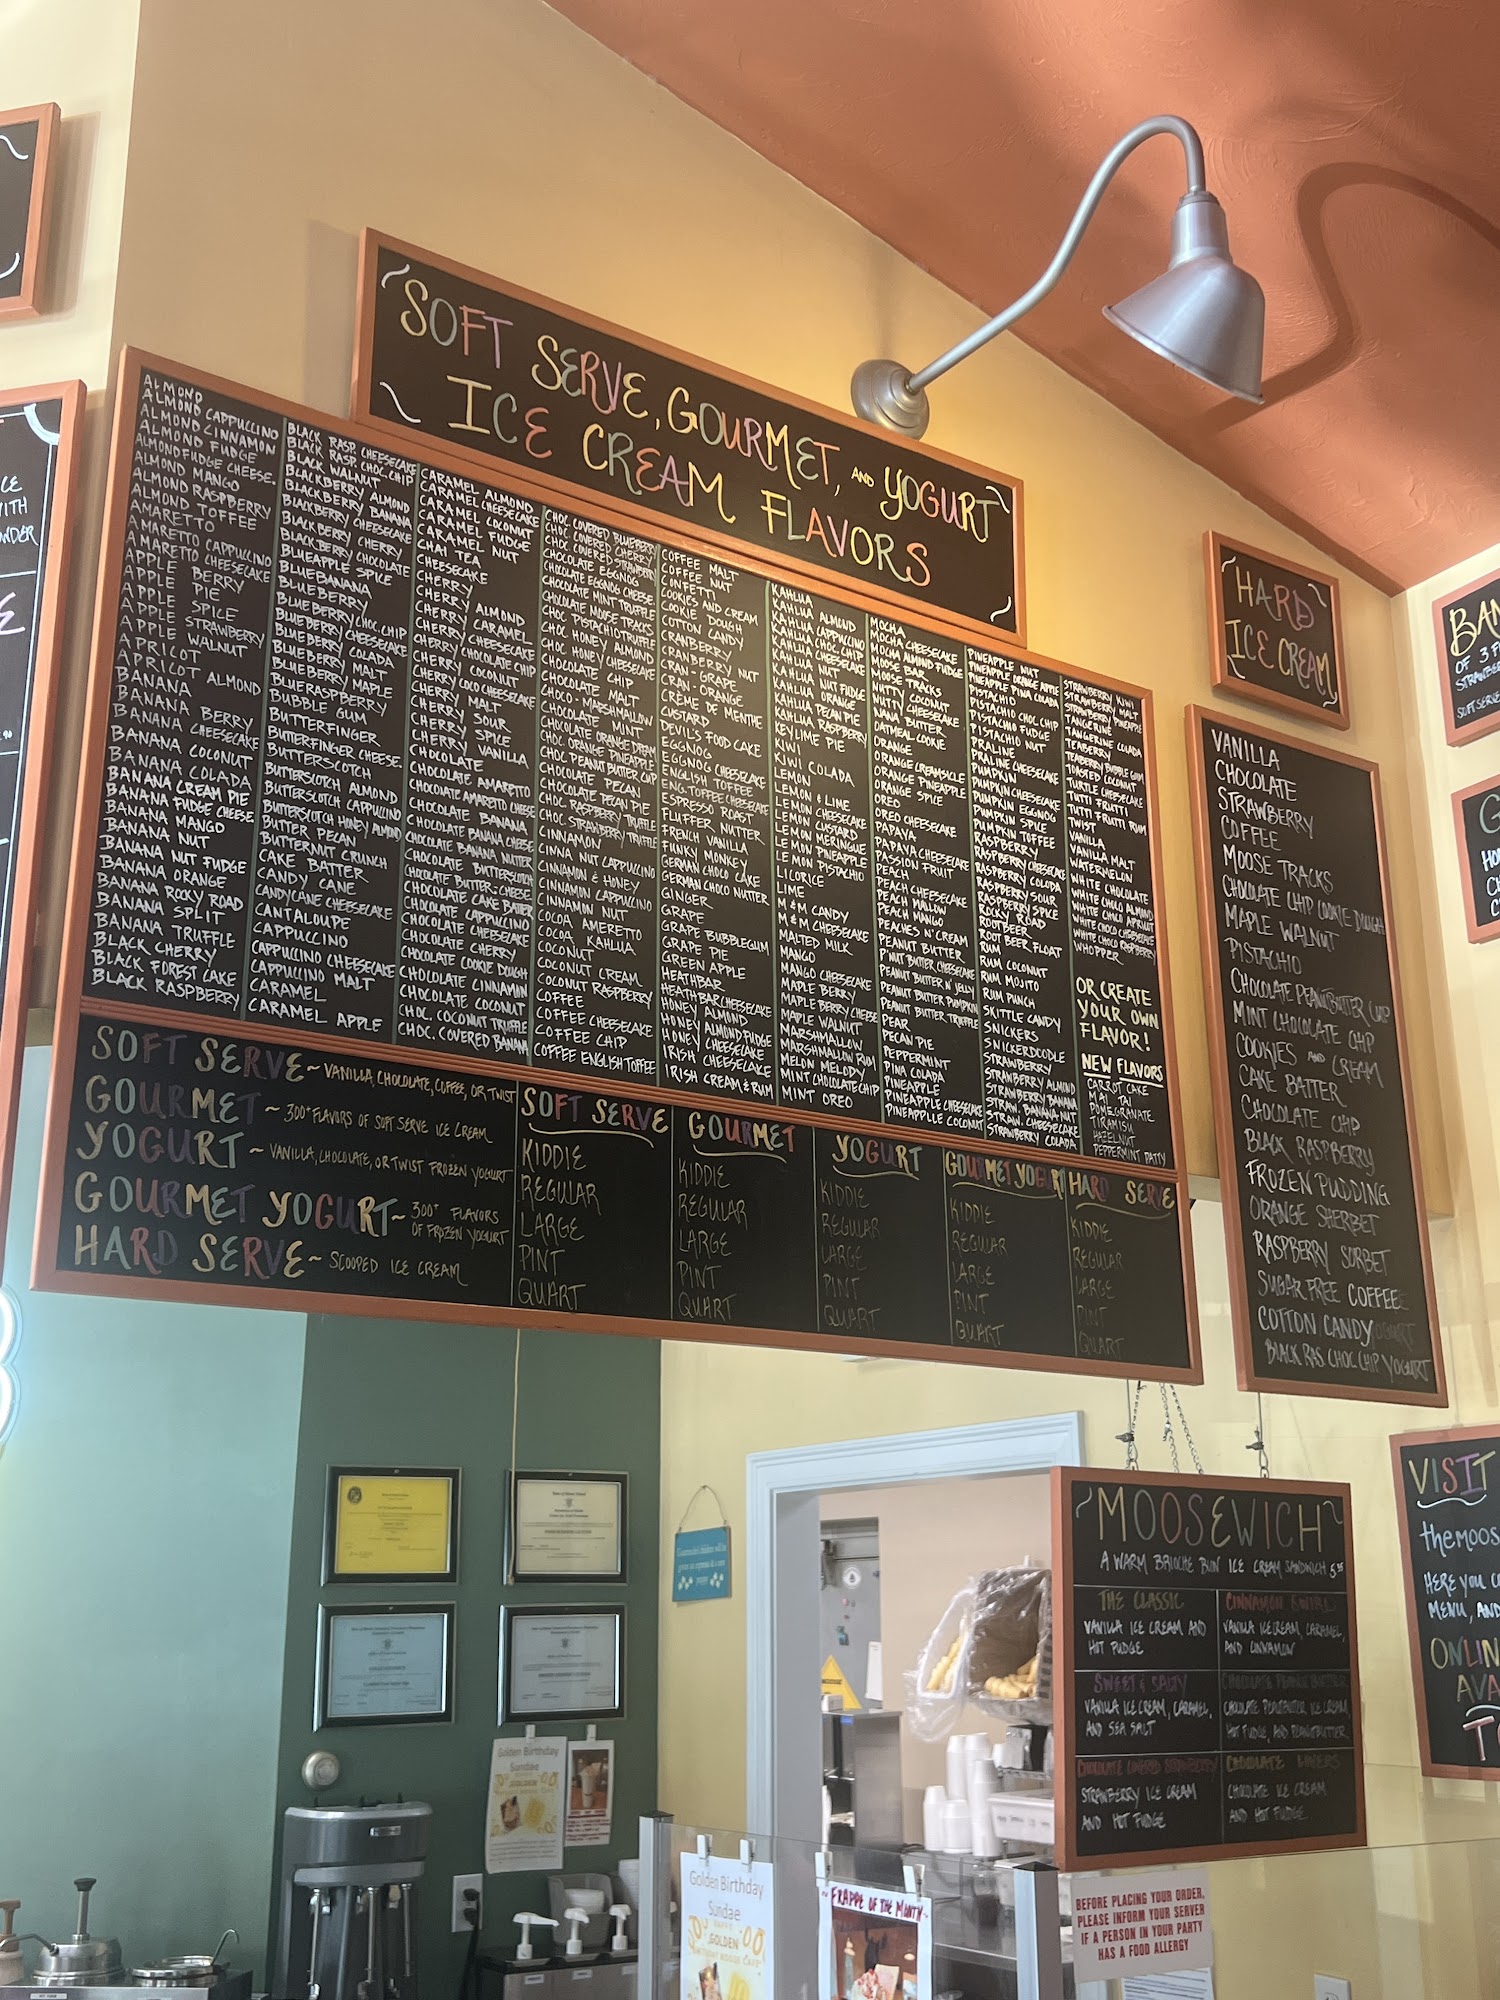 SOFT SERVE, GOURMET, AND YOGURT
ICE CREAM FLAVORS
ALMOND
ALMOND CAPPUCCINO
ALMOND CINNAMON
ALMOND FUDGE
ALMOND FUDGE CHEESE.
ALMOND MANGO
ALMOND RASPBERRY
ALMOND TOFFEE
AMARETTO
AMARETTO CAPPUCCINO
AMARETTO CHEESECAKE
APPLE BERRY
APPLE PIE
APPLE SPICE
APPLE STRAWBERRY
APPLE WALNUT
APRICOT
APRICOT ALMOND
BANANA
BANANA BERRY
BANANA CHEESECAKE
BANANA COCONUT
BANANA COLADA
BANANA CREAM PIE
BANANA FUDGE CHEESE.
BANANA MANGO
BANANA NUT
BANANA NUT FUDGE
BANANA ORANGE
BANANA ROCKY ROAD
BANANA SPLIT
BANANA TRUFFLE
BLACK CHERRY
BLACK FOREST CAKE
BLACK RASPBERRY
BLACK RASP. CHEESECAKE
BLACK RASP. CHOC. CHIP
BLACK WALNUT
BLACKBERRY ALMOND
BLACKBERRY BANANA
BLACKBERRY CHEESECAKE
BLACKBERRY CHERRY
BLACKBERRY CHOCOLATE
BLUEAPPLE SPICE
BLUEBANANA
BLUEBERRY
BLUEBERRY CHOC. CHIP
BLUEBERRY CHEESECAKE
BLUEBERRY COLADA
BLUEBERRY MALT
BLUEBERRY MAPLE
BLUERASPBERRY
BUBBLE GUM
BUTTERFINGER
BUTTERFINGER CHEESE.
BUTTERSCOTCH
BUTTERSCOTCH ALMOND
BUTTERSCOTCH CAPPUCCINO
BUTTERSCOTCH HONEY ALMOND
BUTTER PECAN
BUTTERNUT CRUNCH
CAKE BATTER
CANDY CANE
CANDYCANE CHEESECAKE
CANTALOUPE
CAPPUCCINO
CAPPUCCINO CHEESECAKE
CAPPUCCINO MALT
CARAMEL
CARAMEL APPLE
CARAMEL ALMOND
CARAMEL CHEESECAKE
CARAMEL COCONUT
CARAMEL FUDGE
CARAMEL NUT
CHAI TEA
CHEESECAKE
CHERRY
CHERRY ALMOND
CHERRY CARAMEL
CHERRY CHEESECAKE
CHERRY CHOCOLATE CHIP
CHERRY COCONUT
CHERRY COCO CHEESECAKE
CHERRY MALT
CHERRY SOUR
CHERRY SPICE
CHERRY VANILLA
CHOCOLATE
CHOCOLATE AMARETTO
CHOCOLATE AMARETTO CHEESE.
CHOCOLATE BANANA
CHOCOLATE BANANA CHEESE.
CHOCOLATE BANANA NUTTER
CHOCOLATE BUTTERSCOTCH
CHOCOLATE BUTTER.-CHEESE
CHOCOLATE CAKE BATTER
CHOCOLATE CAPPUCCINO
CHOCOLATE CHEESECAKE
CHOCOLATE CHERRY
CHOCOLATE COOKIE DOUGH
CHOCOLATE CINNAMIN
CHOCOLATE COCONUT
CHOC. COCONUT TRUFFLE
CHOC. COVERED BANANA
CHOC. COVERED BLUEBERRY
CHOC. COVERED CHERRY
CHOC. COVERED STRAWBERRY
CHOCOLATE EGGNOG
CHOCOLATE EGGNOG CHEESE.
CHOCOLATE MINT TRUFFLE
CHOCOLATE MOOSE TRACKS
CHOC PISTACHIO TRUFFLE
CHOC HONEY ALMOND
CHOC HONEY CHEESECAKE
CHOCOLATE CHIP
CHOCOLATE MALT
CHOCO-MARSHMALLOW
CHOCOLATE MINT
CHOCOLATE ORANGE DREAM
CHOC. ORANGE PINEAPPLE
CHOC PEANUT BUTTER CUP
CHOCOLATE PECAN
CHOCOLATE PECAN PIE
CHOC RASPBERRY TRUFFLE
CHOC STRAWBERRY TRUFFLE
CINNAMON
CINNA NUT CAPPUCCINO
CINNAMON & HONEY
CINNAMON CAPPUCCINO
CINNAMON NUT
COCOA AMERETTO
COCOA KAHLUA
COCONUT
COCONUT CREAM
COCONUT RASPBERRY
COFFEE
COFFEE CHEESECAKE
COFFEE CHIP
COFFEE ENGLISH TOFFEE
COFFEE MALT
COFFEE NUT
CONFETTI
COOKIES AND CREAM
COOKIE DOUGH
COTTON CANDY
CRANBERRY
CRANBERRY NUT
CRAN-GRAPE
CRAN-ORANGE
CRÈME DE MENTHE
CUSTARD
DEVILS FOOD CAKE
EGGNOG
EGGNOG CHEESECAKE
ENGLISH TOFFEE
ENG. TOFFEE CHEESECAKE
ESPRESSO ROAST
FLUFFER NUTTER
FRENCH VANILLA
FUNKY MONKEY
GERMAN CHOCO CAKE
GERMAN CHOCO NUTTER
GINGER
GRAPE
GRAPE BUBBLEGUM
GRAPE PIE
GREEN APPLE
HEATHBAR
HEATHBAR CHEESECAKE
HONEY ALMOND
HONEY ALMOND FUDGE
HONEY CHEESECAKE
IRISH CHEESECAKE
IRISH CREAM & RUM
KAHLUA
KAHLUA ALMOND
KAHLUA CAPPUCCINO
KAHLUA CHOC. CHIP
KAHLUA CHEESECAKE
KAHLUA NUT
KAHLUA NUT FUDGE
KAHLUA ORANGE
KAHLUA PECAN PIE
KAHLUA RASPBERRY
KEYLIME PIE
KIWI
KIWI COLADA
LEMON
LEMON & LIME
LEMON CHEESECAKE
LEMON CUSTARD
LEMON MERINGUE
LEMON PINEAPPLE
LEMON PISTACHIO
LICORICE
LIME
M & M CANDY
M & M CHEESECAKE
MALTED MILK
MANGO
MANGO CHEESECAKE
MAPLE BERRY
MAPLE BERRY CHEESE
MAPLE WALNUT
MARSHMALLOW
MARSHMALLOW RUM
MELON MELODY
MINT CHOCOLATE CHIP
MINT OREO
MOCHA
MOCHA CHEESECAKE
MOCHA ALMOND FUDGE
MOOSE BAR
MOOSE TRACKS
NUTTY COCONUT
NUTTY CHEESECAKE
NANA BUTTER
OATMEAL COOKIE
ORANGE
ORANGE CREAMSICLE
ORANGE PINEAPPLE
ORANGE SPICE
OREO
OREO CHEESECAKE
PAPAYA
PAPAYA CHEESECAKE
PASSION FRUIT
PEACH
PEACH CHEESECAKE
PEACH MALLOW
PEACH MANGO
PEACHES N' CREAM
PEANUT BUTTER
P'NUT BUTTER CHEESECAKE
PEANUT BUTTER N' JELLY
PEANUT BUTTER PUMPKIN
PEANUT BUTTER TRUFFLE
PEAR
PECAN PIE
PEPPERMINT
PINA COLADA
PINEAPPLE
PINEAPPLE CHEESECAKE
PINEAPPLLE COCONUT
PINEAPPLE NUT
PINEAPPLE ORANGE APPLE
PINEAPPLE PINA COLADA
PISTACHIO
PISTACHIO CHOC. CHIP
PISTACHIO FUDGE
PISTACHIO NUT
PRALINE
PRALINE CHEESECAKE
PUMPKIN
PUMPKIN CHEESECAKE
PUMPKIN EGGNOG
PUMPKIN SPICE
PUMPKIN TOFFEE
RASPBERRY
RASPBERRY CHEESECAKE
RASPBERRY COLADA
RASPBERRY SOUR
RASPBERRY SPICE
ROCKY ROAD
ROOTBEER
ROOT BEER FLOAT
RUM
RUM COCONUT
RUM MOJITO
RUM PUNCH
SKITTLE CANDY
SNICKERS
SNICKERDOODLE
STRAWBERRY
STRAWBERRY ALMOND
STRAWBERRY BANANA
STRAW. BANANA NUT
STRAW. CHEESECAKE
STRAWBERRY COLADA
STRAWBERRY KIWI
STRAWBERRY MALT
STRAWBERRY PINEAPPLE
TANGERINE
TANGERINE COLADA
TEABERRY
TEABERRY BUBBLE GUM
TOASTED COCONUT
TURTLE CHEESECAKE
TUTTI FRUTTI
TUTTI FRUTTI RUM
TWIST
VANILLA
VANILLA MALT
WATERMELON
WHITE CHOCOLATE
WHITE CHOCO ALMOND
WHITE CHOCO APRICOT
WHITE CHOCO CHEESECAKE
WHITE CHOCO RASPBERRY
WHOPPER
OR CREATE
YOUR OWN
FLAVOR!
NEW FLAVORS
CARROT CAKE
MAI TAI
POMEGRANATE
TIRAMISU
HAZELNUT
PEPPERMINT PATTY
SOFT SERVE~ VANILLA, CHOCOLATE, COFFEE, OR TWIST
GOURMET ~ 300+ FLAVORS OF SOFT SERVE ICE CREAM
YOGURT ~ VANILLA, CHOCOLATE, OR TWIST FROZEN YOGURT
GOURMET YOGURT~ 300+ FLAVORS
OF FROZEN YOGURT
HARD SERVE~ SCOOPED ICE CREAM
SOFT SERVE
KIDDIE
REGULAR
LARGE
PINT
QUART
GOURMET
KIDDIE
REGULAR
LARGE
PINT
QUART
YOGURT
KIDDIE
REGULAR
LARGE
PINT
QUART
GOURMET YOGURT
KIDDIE
REGULAR
LARGE
PINT
QUART
HARD SERVE
KIDDIE
REGULAR
LARGE
PINT
QUART
HARD
ICE CREAM
VANILLA
CHOCOLATE
STRAWBERRY
COFFEE
MOOSE TRACKS
CHOCOLATE CHIP COOKIE DOUGH
MAPLE WALNUT
PISTACHIO
CHOCOLATE PEANUTBUTTER CUP
MINT CHOCOLATE CHIP
COOKIES AND CREAM
CAKE BATTER
CHOCOLATE CHIP
BLACK RASPBERRY
FROZEN PUDDING
ORANGE SHERBET
RASPBERRY SORBET
SUGAR FREE COFFEE
COTTON CANDY
BLACK RAS CHOC CHIP YOGURT
BAN
OF 3 F
STRAWBE
SOFT SERVE
CE
WITH
WDER
MOOSEWICH
A WARM BRIOCHE BUN ICE CREAM SANDWICH 5
THE CLASSIC
VANILLA ICE CREAM AND
HOT FUDGE
CINNAMON SWIRL
VANILLA ICE CREAM, CARAMEL,
AND CINNAMON
SWEET & SALTY
VANILLA ICE CREAM, CARAMEL,
AND SEA SALT
CHOCOLATE PEANUT BUTTER
CHOCOLATE PEANUTBUTTER ICE CREAM,
HOT FUDGE, AND PEANUTBUTTER
CHOCOLATE COVERED STRAWBERRY
STRAWBERRY ICE CREAM
AND HOT FUDGE
CHOCOLATE LOVERS
CHOCOLATE ICE CREAM
AND HOT FUDGE
VISIT
themoos
HERE YOU C
MENU, AND
ONLIN
AVA
Golden Birthday
Sundae
Golden Birthday
Sundae
GOLDEN
FRAPPE OF THE MONTH
BEFORE PLACING YOUR ORDER,
PLEASE INFORM YOUR SERVER
IF A PERSON IN YOUR PARTY
HAS A FOOD ALLERGY